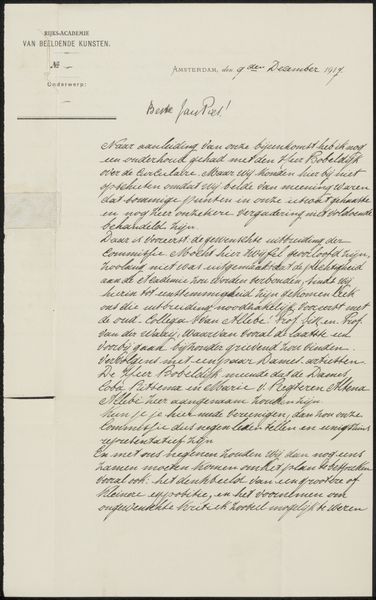 RIJKS-ACADEMIE
VAN BEELDENDE KUNSTEN.
№
Onderwerp:
AMSTERDAM, den 9den December 1917.
Beste Jan Piet!
Naar aanleiding van onze bijeenkomst heb ik nog
een onderhoud gehad met den Heer Bobeldijk
over de Circulaire. Maar wij konden hier bij niet
opschieten omdat wij beide van meening waren
dat sommige punten in onze
en nog zeer onzekere vergadering niet voldoende
behandeld zijn.
Daar is vooreerst de gewenschte uitbreiding der
Commissie. Mocht hier twijfel geweest zijn,
zoolang niet was uitgemaakt dat de plechtigheid
aan de Academie zou worden verbonden,
hierin tot eenstemmigheid zijn gekomen
ons die uitbreiding noodzakelijk, vooreerst met
de oud. Collega's van Allebé: Prof. Six en Prof.
van der Waay, waarvan vooral de laatste een
voorbijgaan bijzonder grievend zou vinden.
Vervolgens met een paar Dames-artisten
De Heer Bobeldijk meende dat de Dames,
Coba Ritsema en Marie v. Regteren Altena
Allebé zeer aangenaam zouden zijn
Kun je je hier mede vereenigen, dan zou onze
Commissie dus negen leden tellen en eenigszins
representatief zijn
En met ons negenen zouden wij dan nog eens
zamen moeten komen om het plan te bespreken
vooral ook: het denkbeeld van een grootere of
kleinere expositie, en het voornemen om
ongewenschte kritiek zooveel mogelijk te weren